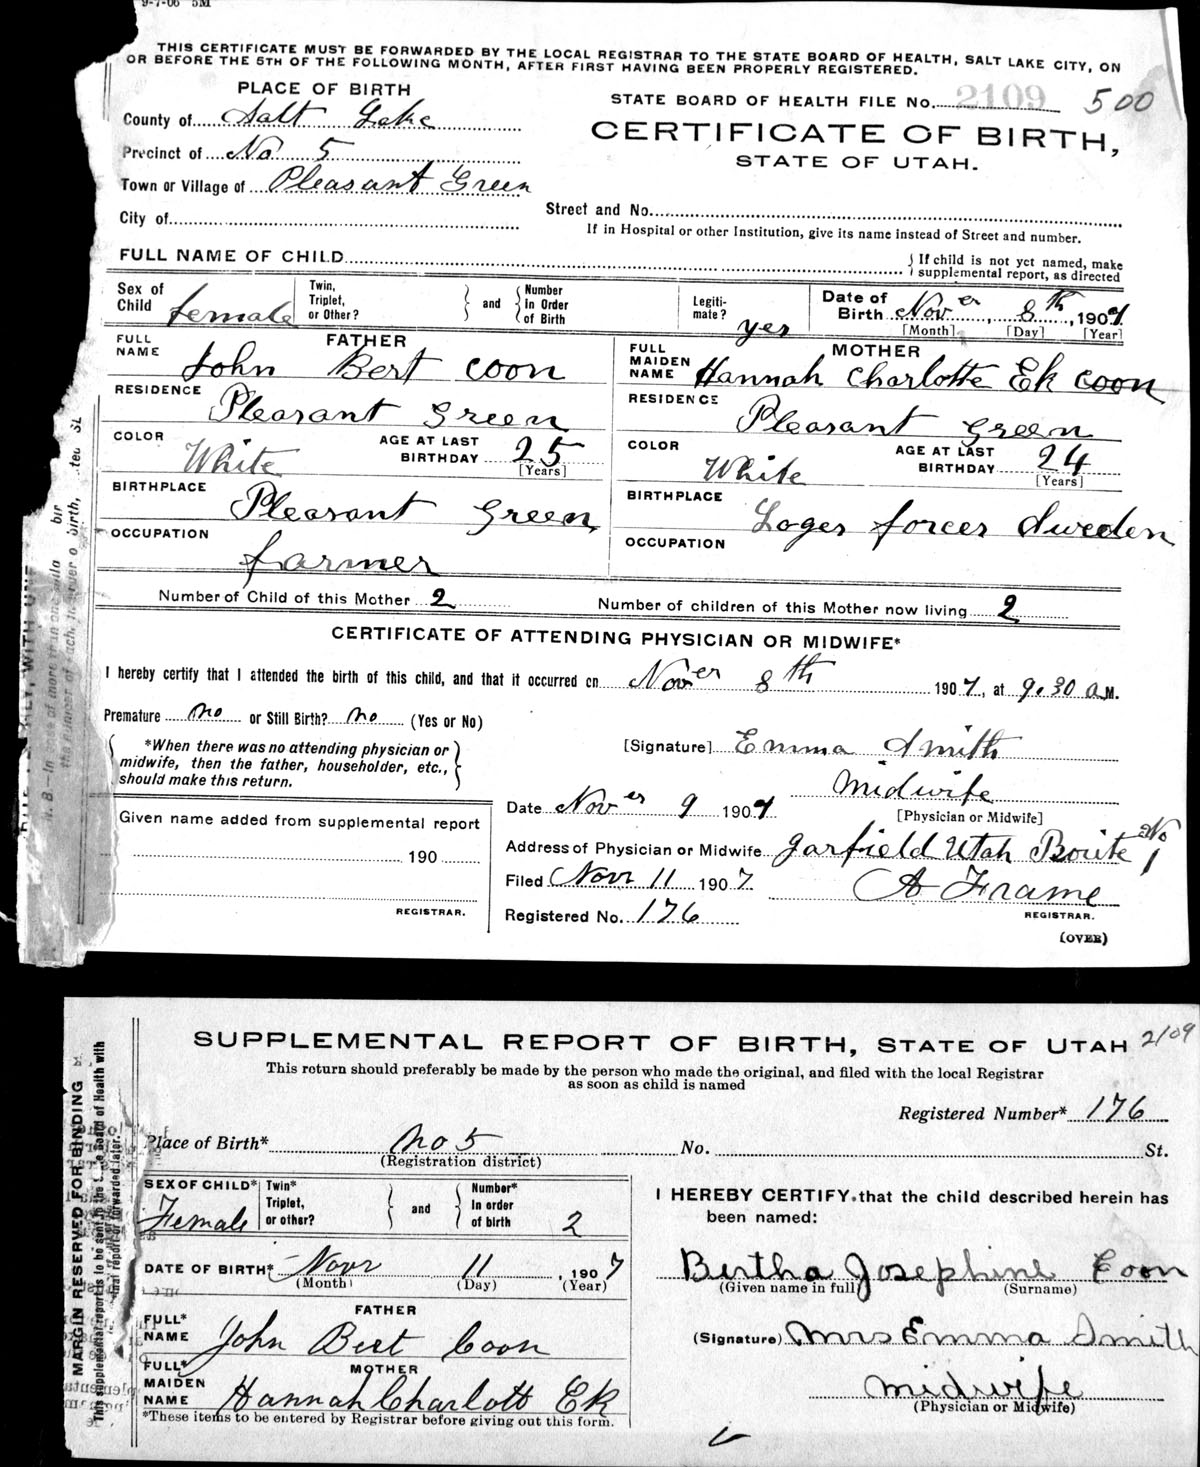 9-7-06 5M
THIS CERTIFICATE MUST BE FORWARDED BY THE LOCAL REGISTRAR TO THE STATE BOARD OF HEALTH, SALT LAKE CITY, ON
OR BEFORE THE 5TH OF THE FOLLOWING MONTH, AFTER FIRST HAVING BEEN PROPERLY REGISTERED.
PLACE OF BIRTH
STATE BOARD OF HEALTH FILE No. 2109 500
County of Salt Lake
CERTIFICATE OF BIRTH,
STATE OF UTAH.
Precinct of No 5
Town or Village of Pleasant Green
City of
Street and No.
If in Hospital or other Institution, give its name instead of Street and number.
FULL NAME OF CHILD
{ If child is not yet named, make
supplemental report, as directed
Sex of Child female
Twin, Triplet, or Other? } and { Number In Order of Birth
Legitimate? yes
Date of Birth Nover 8th, 1907
[Month] [Day] [Year]
FATHER
FULL NAME John Bert Coon
RESIDENCE Pleasant Green
COLOR White AGE AT LAST BIRTHDAY 25 [Years]
BIRTHPLACE Pleasant Green
OCCUPATION farmer
MOTHER
FULL MAIDEN NAME Hannah Charlotte Ek coon
RESIDENCE Pleasant Green
COLOR White AGE AT LAST BIRTHDAY 24 [Years]
BIRTHPLACE Loges forces Sweden
OCCUPATION
Number of Child of this Mother 2 Number of children of this Mother now living 2
CERTIFICATE OF ATTENDING PHYSICIAN OR MIDWIFE*
I hereby certify that I attended the birth of this child, and that it occurred on Nover 8th 1907, at 9.30 a.M.
Premature no or Still Birth? no (Yes or No)
{ *When there was no attending physician or
midwife, then the father, householder, etc., }
should make this return.
[Signature] Emma Smith
Midwife
[Physician or Midwife]
Date Nover 9 1907
Given name added from supplemental report
190
REGISTRAR.
Address of Physician or Midwife Garfield Utah Route No 1
Filed Novr 11 1907. A Frame
REGISTRAR.
Registered No. 176
(OVER)
SUPPLEMENTAL REPORT OF BIRTH, STATE OF UTAH 2109
This return should preferably be made by the person who made the original, and filed with the local Registrar
as soon as child is named
Registered Number* 176
Place of Birth* No 5 No. St.
(Registration district)
SEX OF CHILD* Female
Twin* Triplet, or other? } and { Number* In order of birth 2
DATE OF BIRTH* Novr 11, 1907
(Month) (Day) (Year)
FATHER
FULL* NAME John Bert Coon
MOTHER
FULL* MAIDEN NAME Hannah Charlott Ek
*These items to be entered by Registrar before giving out this form.
I HEREBY CERTIFY, that the child described herein has
been named:
Bertha Josephine Coon
(Given name in full) (Surname)
(Signature) Mrs Emma Smith
Midwife
(Physician or Midwife)
MARGIN RESERVED FOR BINDING